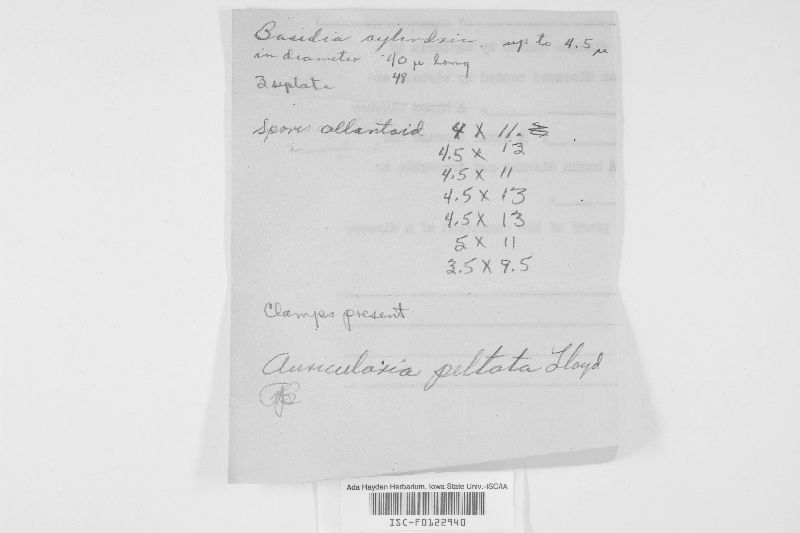 Basidia cylindric. up to 4.5 μ
in diameter 40 μ long
3 septate 48
Spores allantoid 4 X 11.5
4.5 X 13
4.5 X 11
4.5 X 13
4.5 X 13
5 X 11
3.5 X 9.5
Clamps present
Auricularia peltata Lloyd
Ada Hayden Herbarium, Iowa State Univ.-ISC/IA
ISC-F0122940